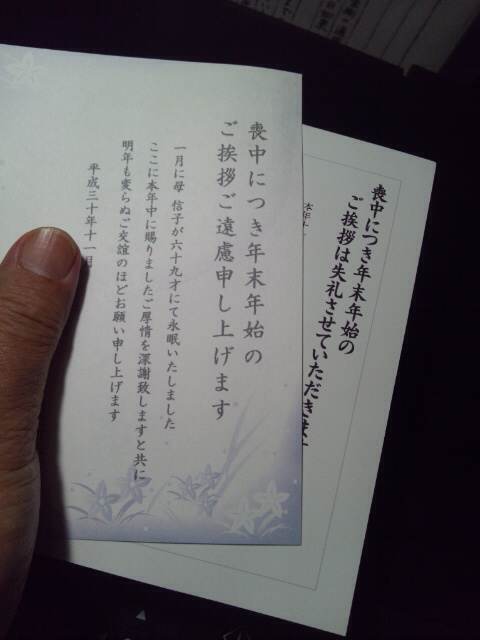 喪中につき年末年始の
ご挨拶ご遠慮申し上げます
一月に母 信子が六十九才にて永眠いたしました
ここに本年中に賜りましたご厚情を深謝致しますと共に
明年も変らぬご交誼のほどお願い申し上げます
平成三十年十一月
喪中につき年末年始の
ご挨拶は失礼させていただきま
本年